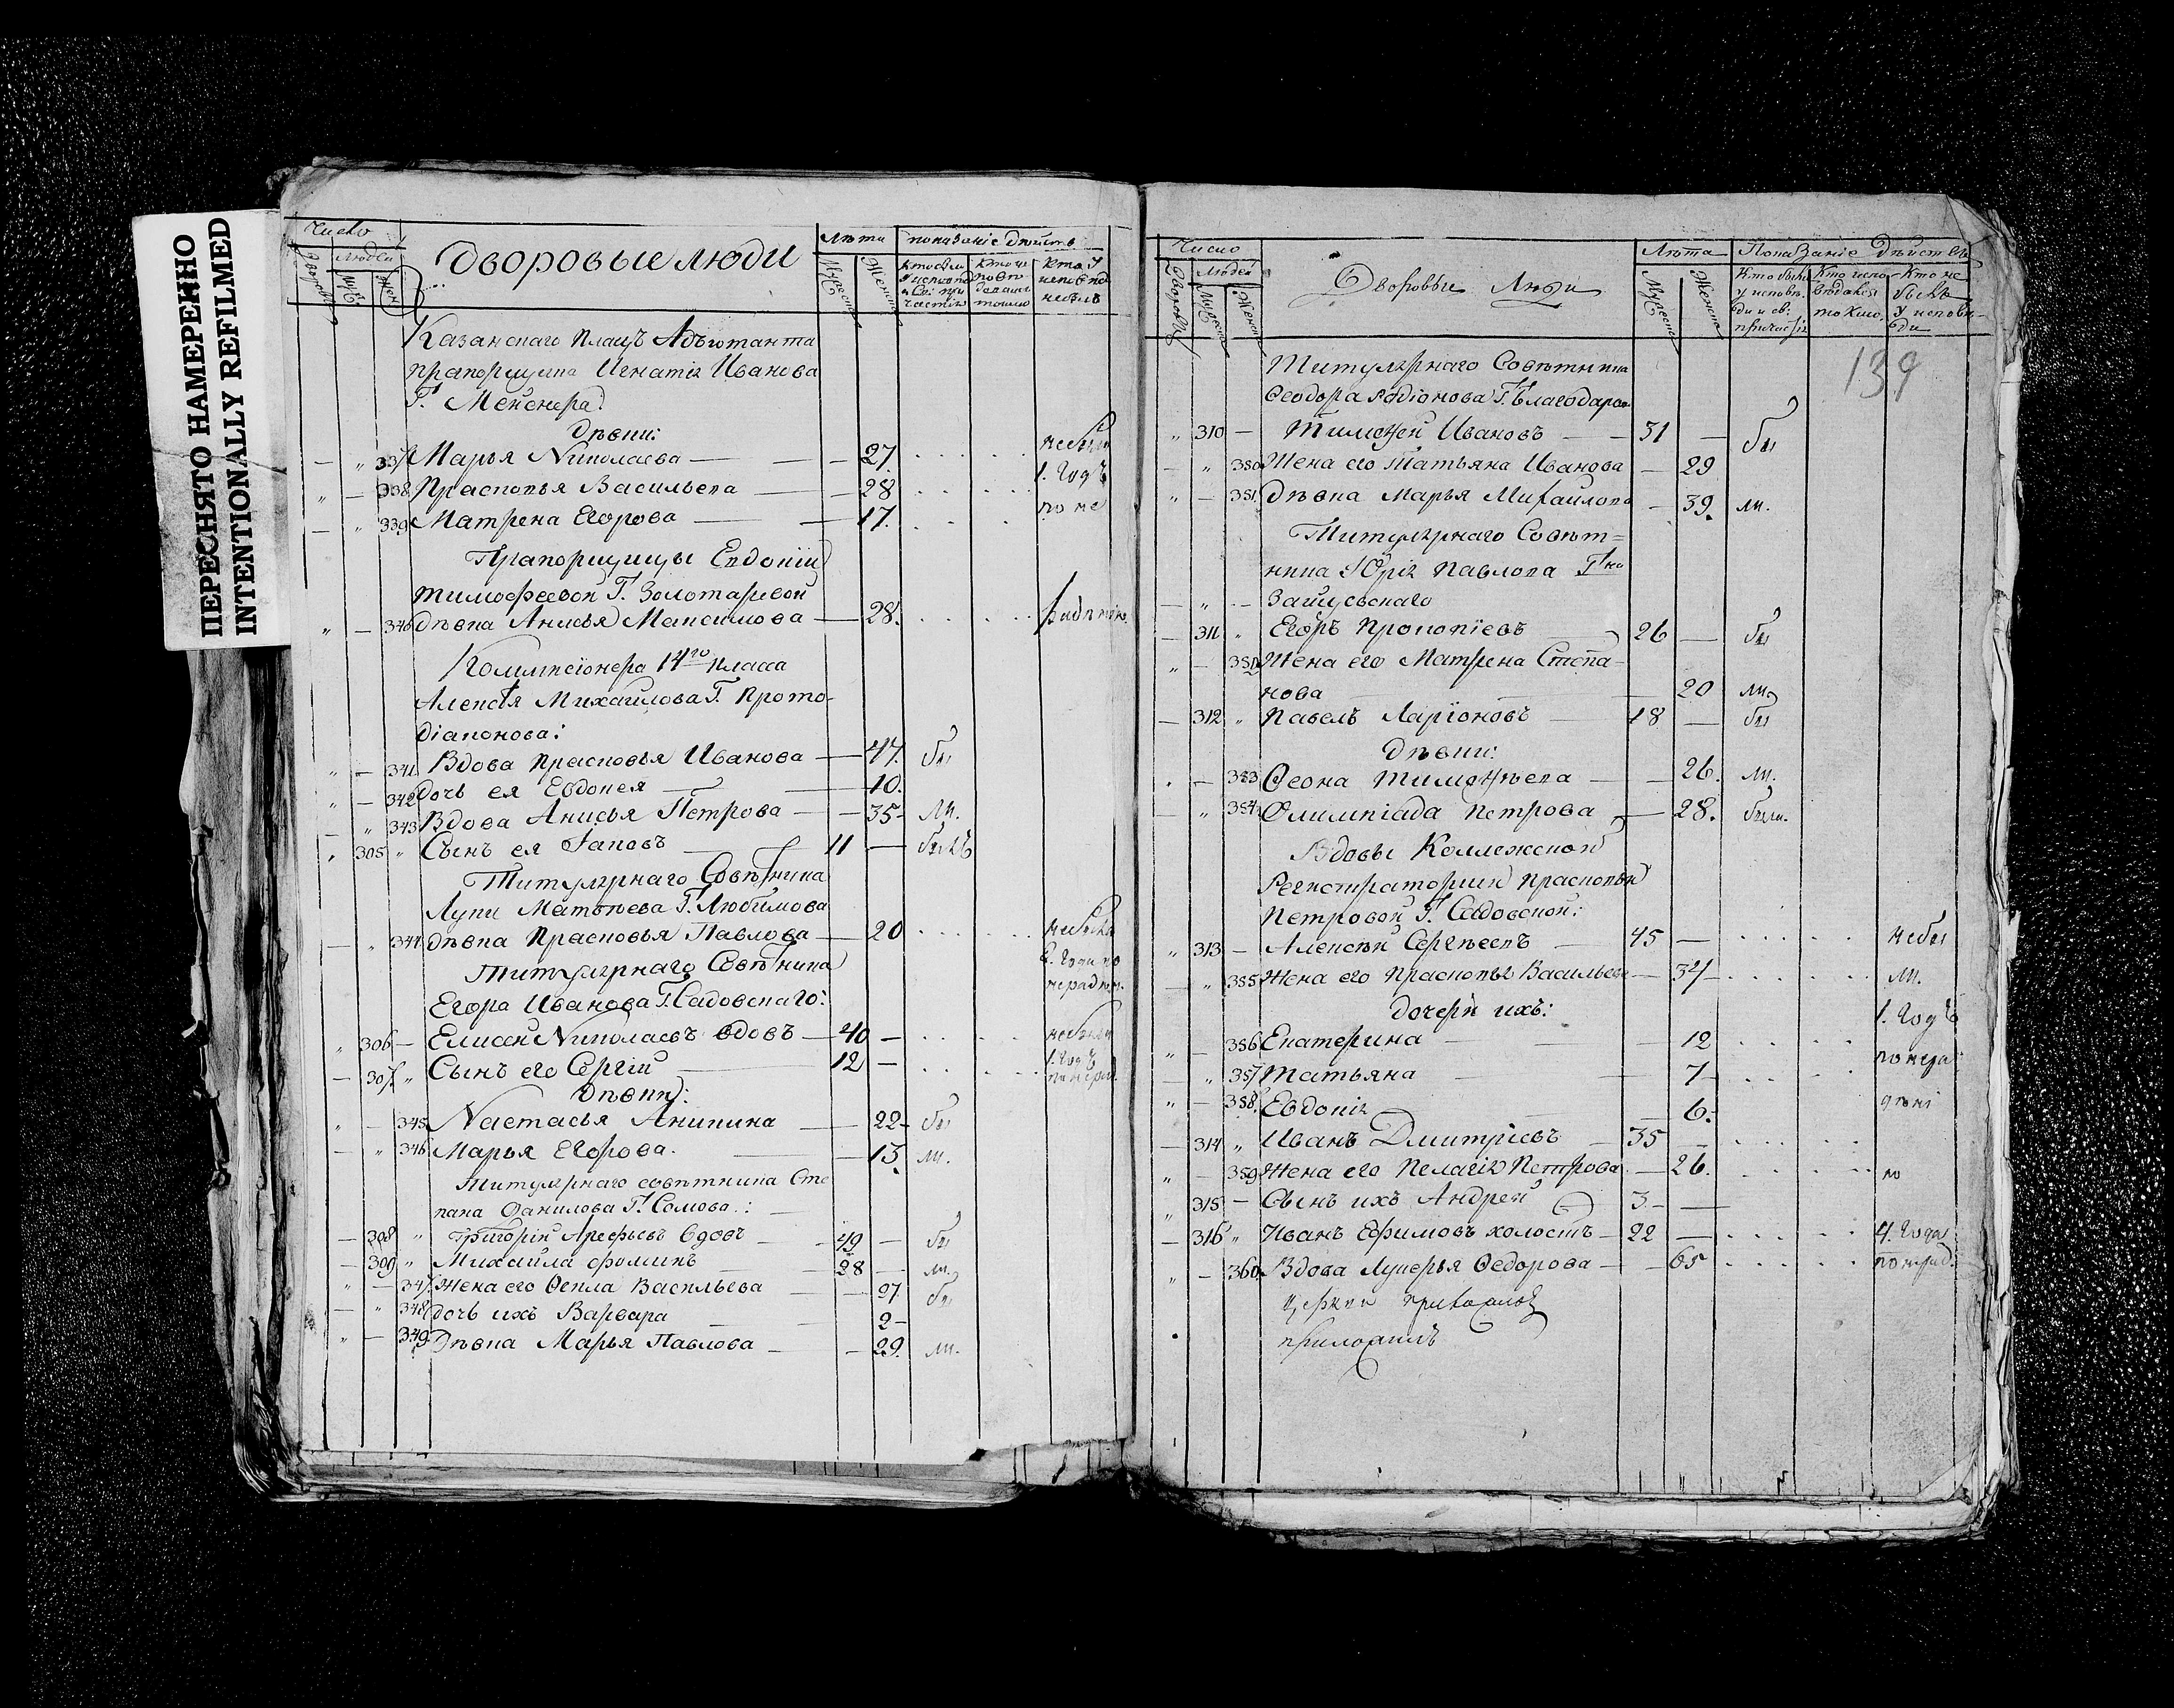 ПЕРЕСНЯТО НАМЕРЕННО
INTENTIONALLY REFILMED
Число Лѣта показаніе дѣйств
Людей
Дворовые люди
Казанскаго Плацъ Адъютанта
прапорщика Игнатія Иванова
Г. Мейснера
дѣвки:
337 Марья Николаева — 27. небыли
338 Прасковья Васильева — 28 1. годъ
339 Матрена Егорова — 17. по не
Прапорщицы Евдокіи
Тимофеевой Г. Золотаревой
340 дѣвка Анисья Максимова — 28.
Коммисіонера 14го класса
Алексѣя Михайлова Г. Прото-
діаконова:
341 Вдова Прасковья Иванова — 47. бы
342 дочь ея Евдокея — 10.
343 Вдова Анисья Петрова — 35 ли.
305 Сынъ ея Іаковъ 11 — былъ
Титулярнаго Совѣтника
Луки Матвѣева Г. Любимова
344 дѣвка Прасковья Павлова — 20 небыла
Титулярнаго Совѣтника 2. года по
Егора Иванова Г. Садовскаго: нерадѣн.
306 — Елисей Николаевъ вдовъ — 40 — небыли
307 Сынъ его Сергій 12 — 1. годъ
дѣвки:
345 Настасья Аникина — 22 бы
346 Марья Егорова. — 13 ли.
Титулярнаго совѣтника Сте
пана Данилова Г. Сомова:
308 Григорій Арефьевъ вдовъ — 49 — бы
309 Михайла Фоминъ 28 — ли
347 Жена его Ѳекла Васильева — 27 бы
348 дочь ихъ Варвара 2
349 Дѣвка Марья Павлова — 29. ли.
Число Лѣта Показаніе дѣйствъ
Людей
Дворовые Люди
Кто были Кто испо- Кто не
у исповѣ- вѣдался былъ
ди и св: токмо. у исповѣ-
причастія ди
139
Титулярнаго Совѣтника
Ѳеодора Родіонова Г. Благодаров
310 — Тимоѳей Ивановъ — 31 — бы
350 Жена его Татьяна Иванова — 29
351 Дѣвка Марья Михайлова — 39. ли.
Титулярнаго Совѣт=
ника Юрія Павлова Гна
Защусскаго
311 Егоръ Прокопіевъ 26 — бы
352 Жена его Матрена Степа-
нова — 20 ли
312 Павелъ Ларіоновъ — 18 — бы
дѣвки:
353 Ѳеона Тимоѳѣева — 26. ли.
354 Олимпіада Петрова — 28. были.
Вдовы Коллежской
Регистраторши Прасковьи
Петровой Г. Садовской:
313 — Алексѣй Сергѣевъ — 45 — небы
355 Жена его Прасковья Васильева — 34 ли.
дочери ихъ: 1. годъ
356 Екатерина — 12
357 Татьяна — 7 понера
358 Евдокія — 6. дѣні
314 Иванъ Дмитріевъ — 35 —
359 Жена его Пелагія Петрова. — 26. ю
315 — Сынъ ихъ Андрей 3 —
316 Иванъ Ефимовъ холостъ — 22 — 4. года
360 Вдова Лукерья Ѳедорова — 65 понерад.